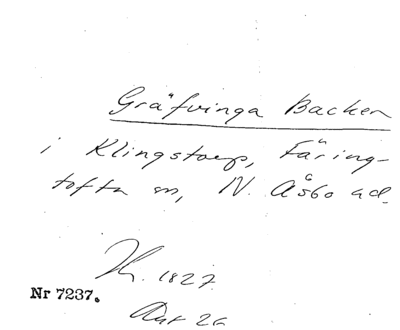 Gräfvinga Backen
i Klingstorp, Färing-
tofta sn, N. Åsbo hd.
1827.
Nr 7237.